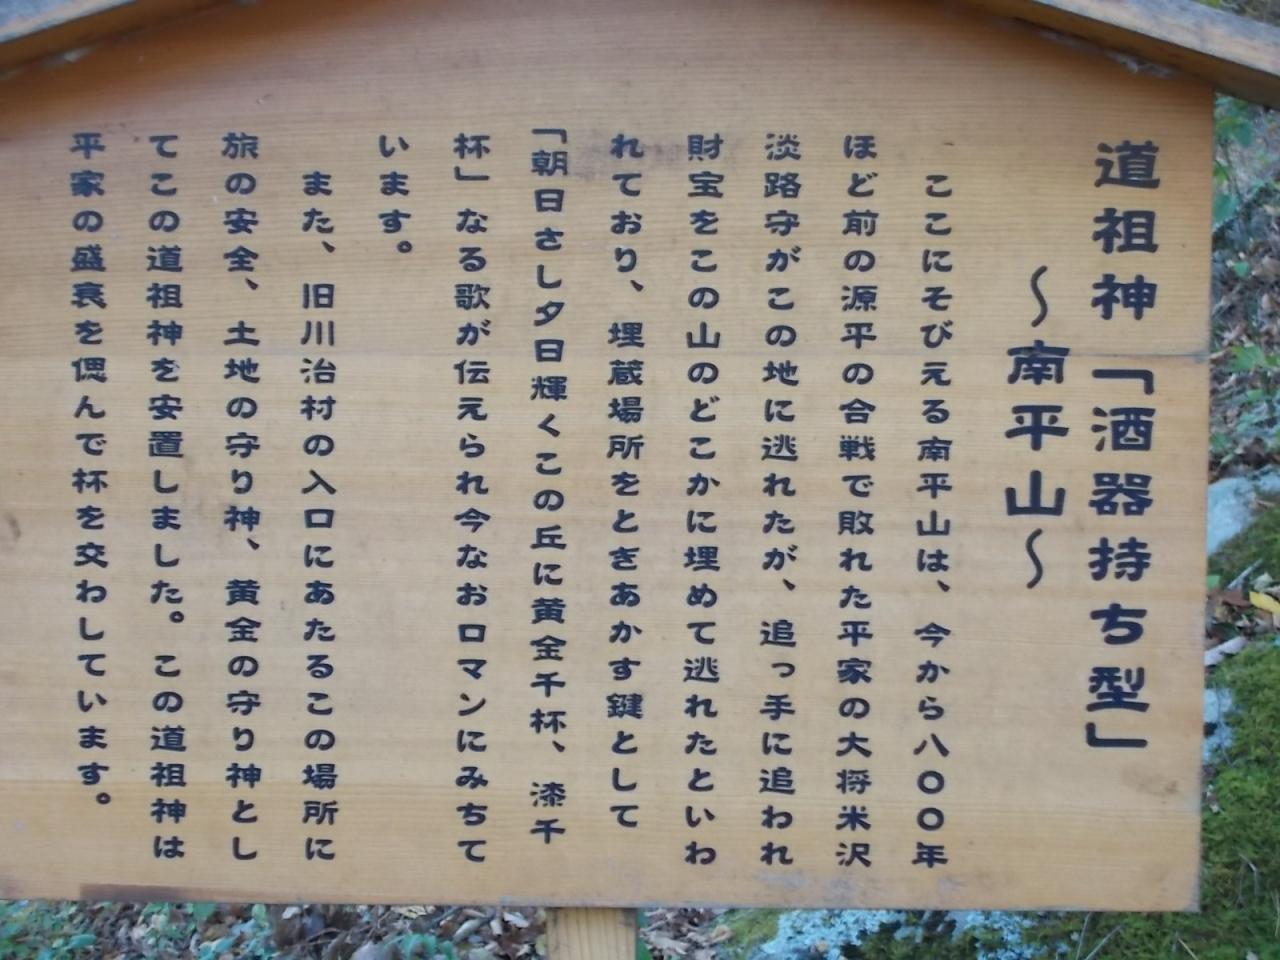 道祖神「酒器持ち型」
～南平山～
ここにそびえる南平山は、今から八〇〇年
ほど前の源平の合戦で敗れた平家の大将米沢
淡路守がこの地に逃れたが、追っ手に追われ
財宝をこの山のどこかに埋めて逃れたといわ
れており、埋蔵場所をときあかす鍵として
「朝日さし夕日輝くこの丘に黄金千杯、漆千
杯」なる歌が伝えられ今なおロマンにみちて
います。
また、旧川治村の入口にあたるこの場所に
旅の安全、土地の守り神、黄金の守り神とし
てこの道祖神を安置しました。この道祖神は
平家の盛衰を偲んで杯を交わしています。